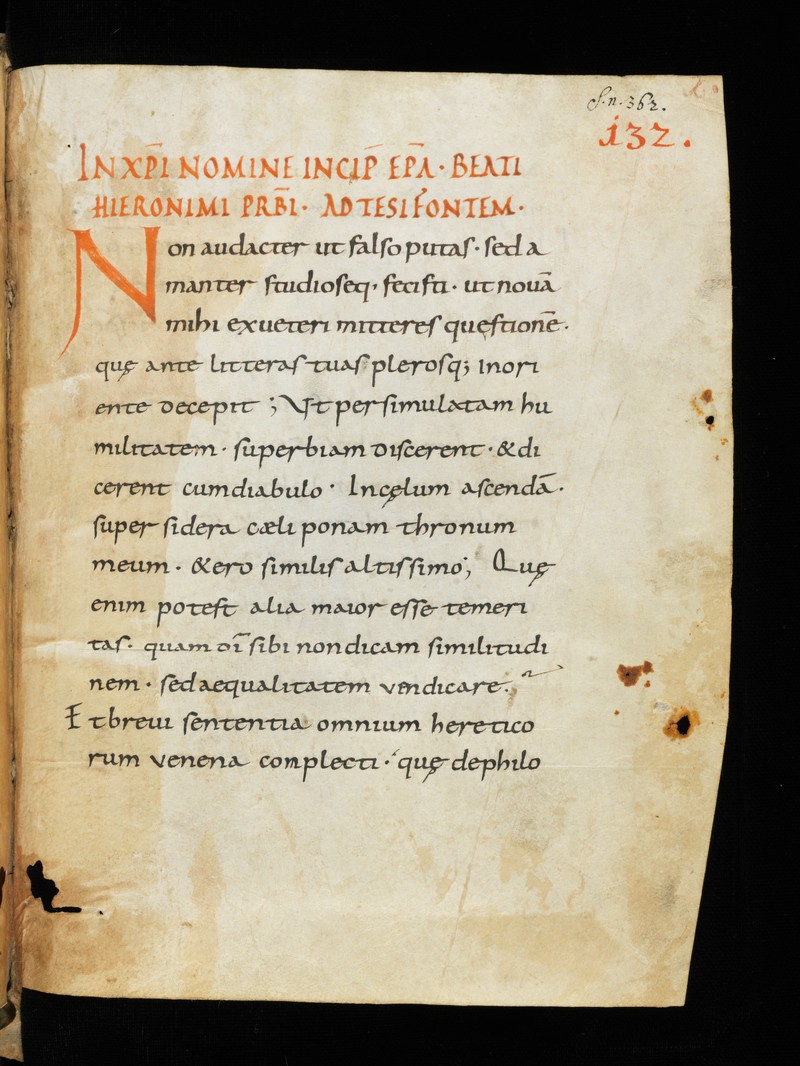 S. n. 362.
132.
IN XP̄I NOMINE INCIP̄ EPL̄A · BEATI
HIERONIMI PRB̄I · AD TESIFONTEM ·
Non audacter ut falso putas · sed a
manter studioseq; fecisti · ut nouā
mihi exueteri mitteres quęstionē ·
quę ante litteras tuas plerosq; inori
ente decepit ; Ut persimulatam hu
militatem · superbiam discerent · & di
cerent cumdiabulo · Incęlum ascendā ·
super sidera cæli ponam thronum
meum · & ero similis altissimo ; Quę
enim potest alia maior esse temeri
tas · quam dī sibi non dicam similitudi
nem · sed aequalitatem vendicare .
Et breui sententia omnium heretico
rum venena complecti · quę dephilo